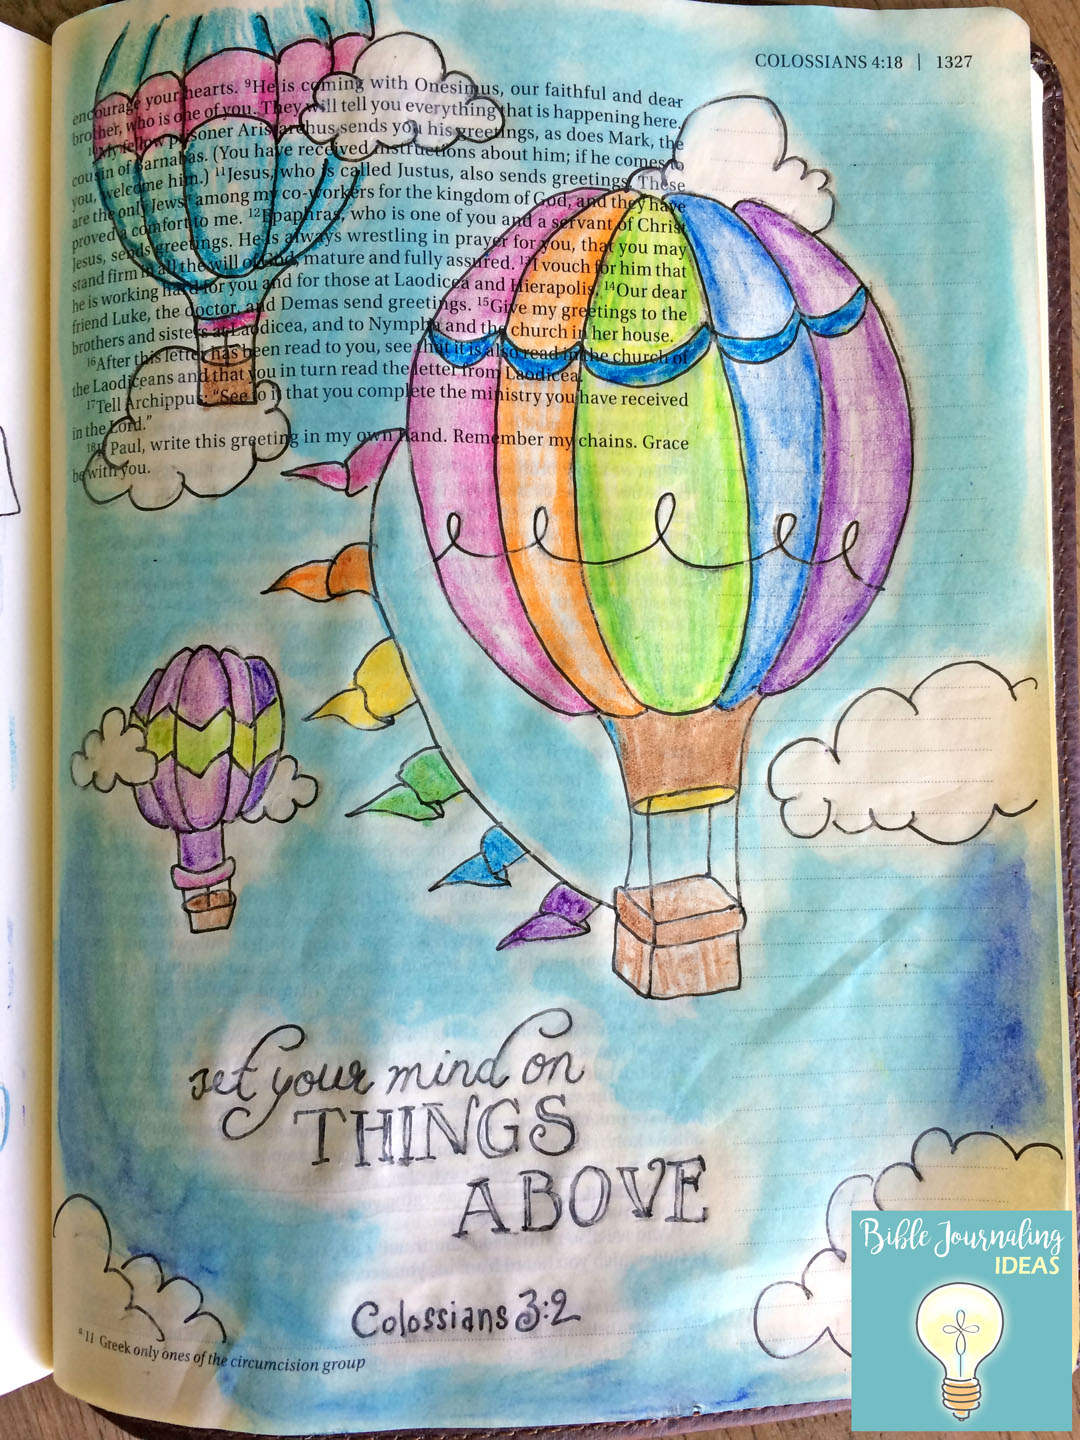 COLOSSIANS 4:18 | 1327
encourage your hearts. ⁹He is coming with Onesimus, our faithful and dear
brother, who is one of you. They will tell you everything that is happening here.
¹⁰My fellow prisoner Aristarchus sends you his greetings, as does Mark, the
cousin of Barnabas. (You have received instructions about him; if he comes to
you, welcome him.) ¹¹Jesus, who is called Justus, also sends greetings. These
are the only Jewsᵃ among my co-workers for the kingdom of God, and they have
proved a comfort to me. ¹²Epaphras, who is one of you and a servant of Christ
Jesus, sends greetings. He is always wrestling in prayer for you, that you may
stand firm in all the will of God, mature and fully assured. ¹³I vouch for him that
he is working hard for you and for those at Laodicea and Hierapolis. ¹⁴Our dear
friend Luke, the doctor, and Demas send greetings. ¹⁵Give my greetings to the
brothers and sisters at Laodicea, and to Nympha and the church in her house.
¹⁶After this letter has been read to you, see that it is also read in the church of
the Laodiceans and that you in turn read the letter from Laodicea.
¹⁷Tell Archippus: “See to it that you complete the ministry you have received
in the Lord.”
¹⁸I, Paul, write this greeting in my own hand. Remember my chains. Grace
be with you.
set your mind on
THINGS
ABOVE
Colossians 3:2
ᵃ 11 Greek only ones of the circumcision group
Bible Journaling
IDEAS